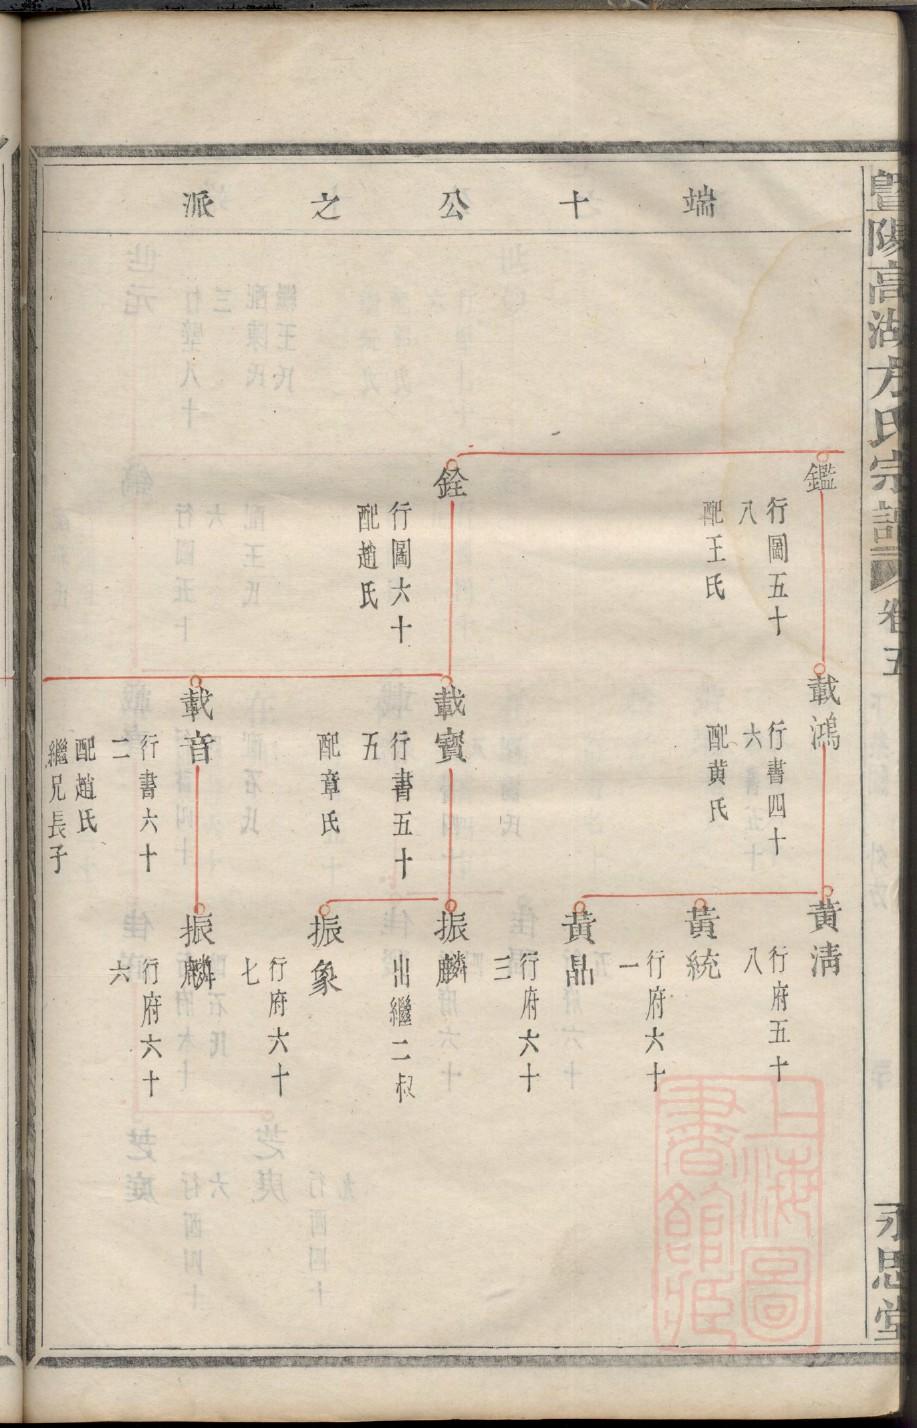 暨陽高湖方氏宗譜
卷五
永思堂
端十公之派
鑑
行圖五十
八
配王氏
銓
行圖六十
配趙氏
載鴻
行書四十
六
配黄氏
載寳
行書五十
五
配章氏
載音
行書六十
二
配趙氏
繼兄長子
黄清
行府五十
八
黃統
行府六十
一
黃晶
行府六十
三
振麟
出繼二叔
振象
行府六十
七
振麟
行府六十
六
上海圖
書館藏